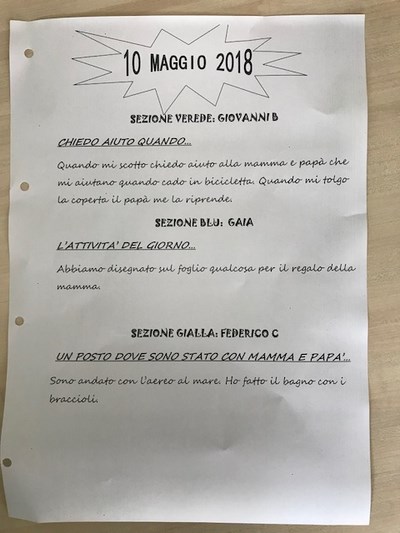 10 MAGGIO 2018
SEZIONE VEREDE: GIOVANNI B
CHIEDO AIUTO QUANDO...
Quando mi scotto chiedo aiuto alla mamma e papà che
mi aiutano quando cado in bicicletta. Quando mi tolgo
la coperta il papà me la riprende.
SEZIONE BLU: GAIA
L'ATTIVITA' DEL GIORNO...
Abbiamo disegnato sul foglio qualcosa per il regalo della
mamma.
SEZIONE GIALLA: FEDERICO C
UN POSTO DOVE SONO STATO CON MAMMA E PAPA'...
Sono andato con l'aereo al mare. Ho fatto il bagno con i
braccioli.